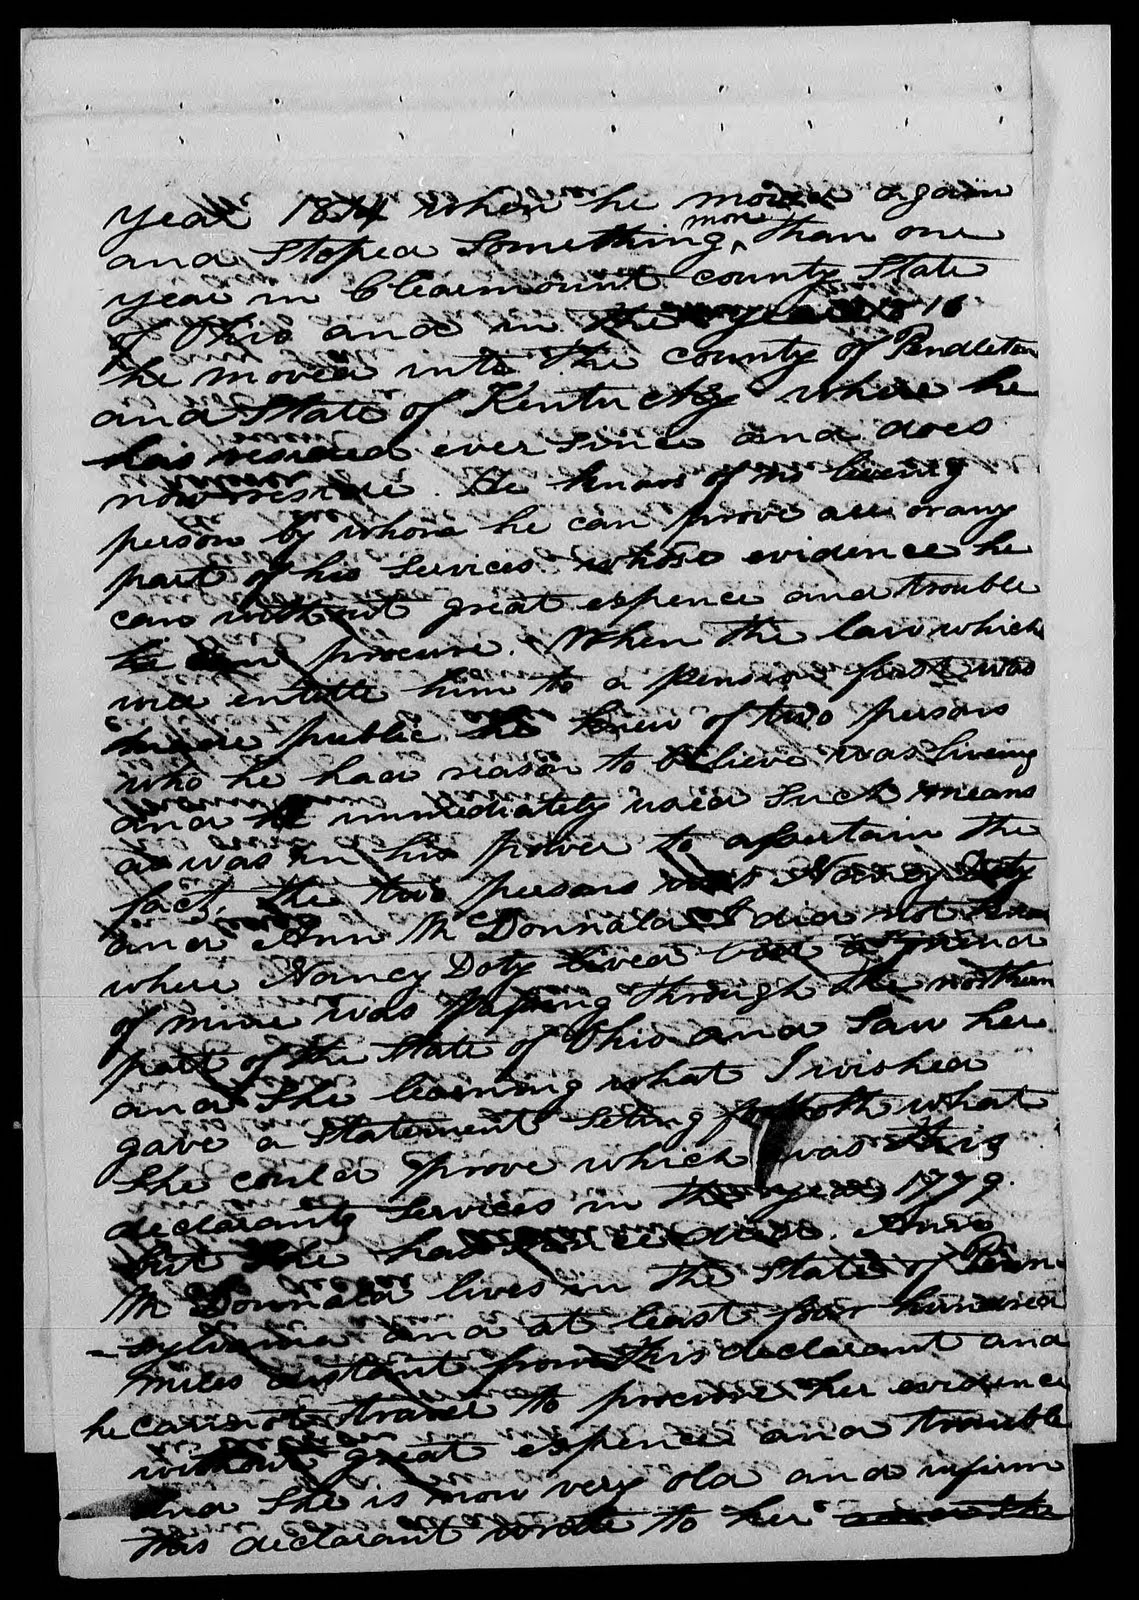 year 1814 when he moved again
and Stoped Something more than one
year in Clearmount county State
of Ohio and in the year 1816
he moved into the county of Pendleton
and State of Kentucky where he
has resided ever since and does
now reside. He knows of no liveing
person by whom he can prove all or any
part of his Services whose evidence he
can without great expence and trouble
procure. When the law which
will entitle him to a pension first was
made public he knew of two persons
who he had reason to believe was liveing
and he immediately used Such means
as was in his power to assertain the
fact, the two persons was Nancy Doty
and Ann McDonnald I did not know
where Nancy Doty lived but a friend
of mine was passing through the northern
part of the State of Ohio and Saw her
and She learning what I wished
gave a Statement Seting forth what
She could prove which was this
declarants Services in the year 1779.
but She has since died. Ann
McDonnald lives in the State of Penn
-sylvania and at least four hundred
miles distant from this declarant and
he cannot travel to procure her evidence
without great expence and trouble
and She is now very old and infirm
this declarant wrote to her